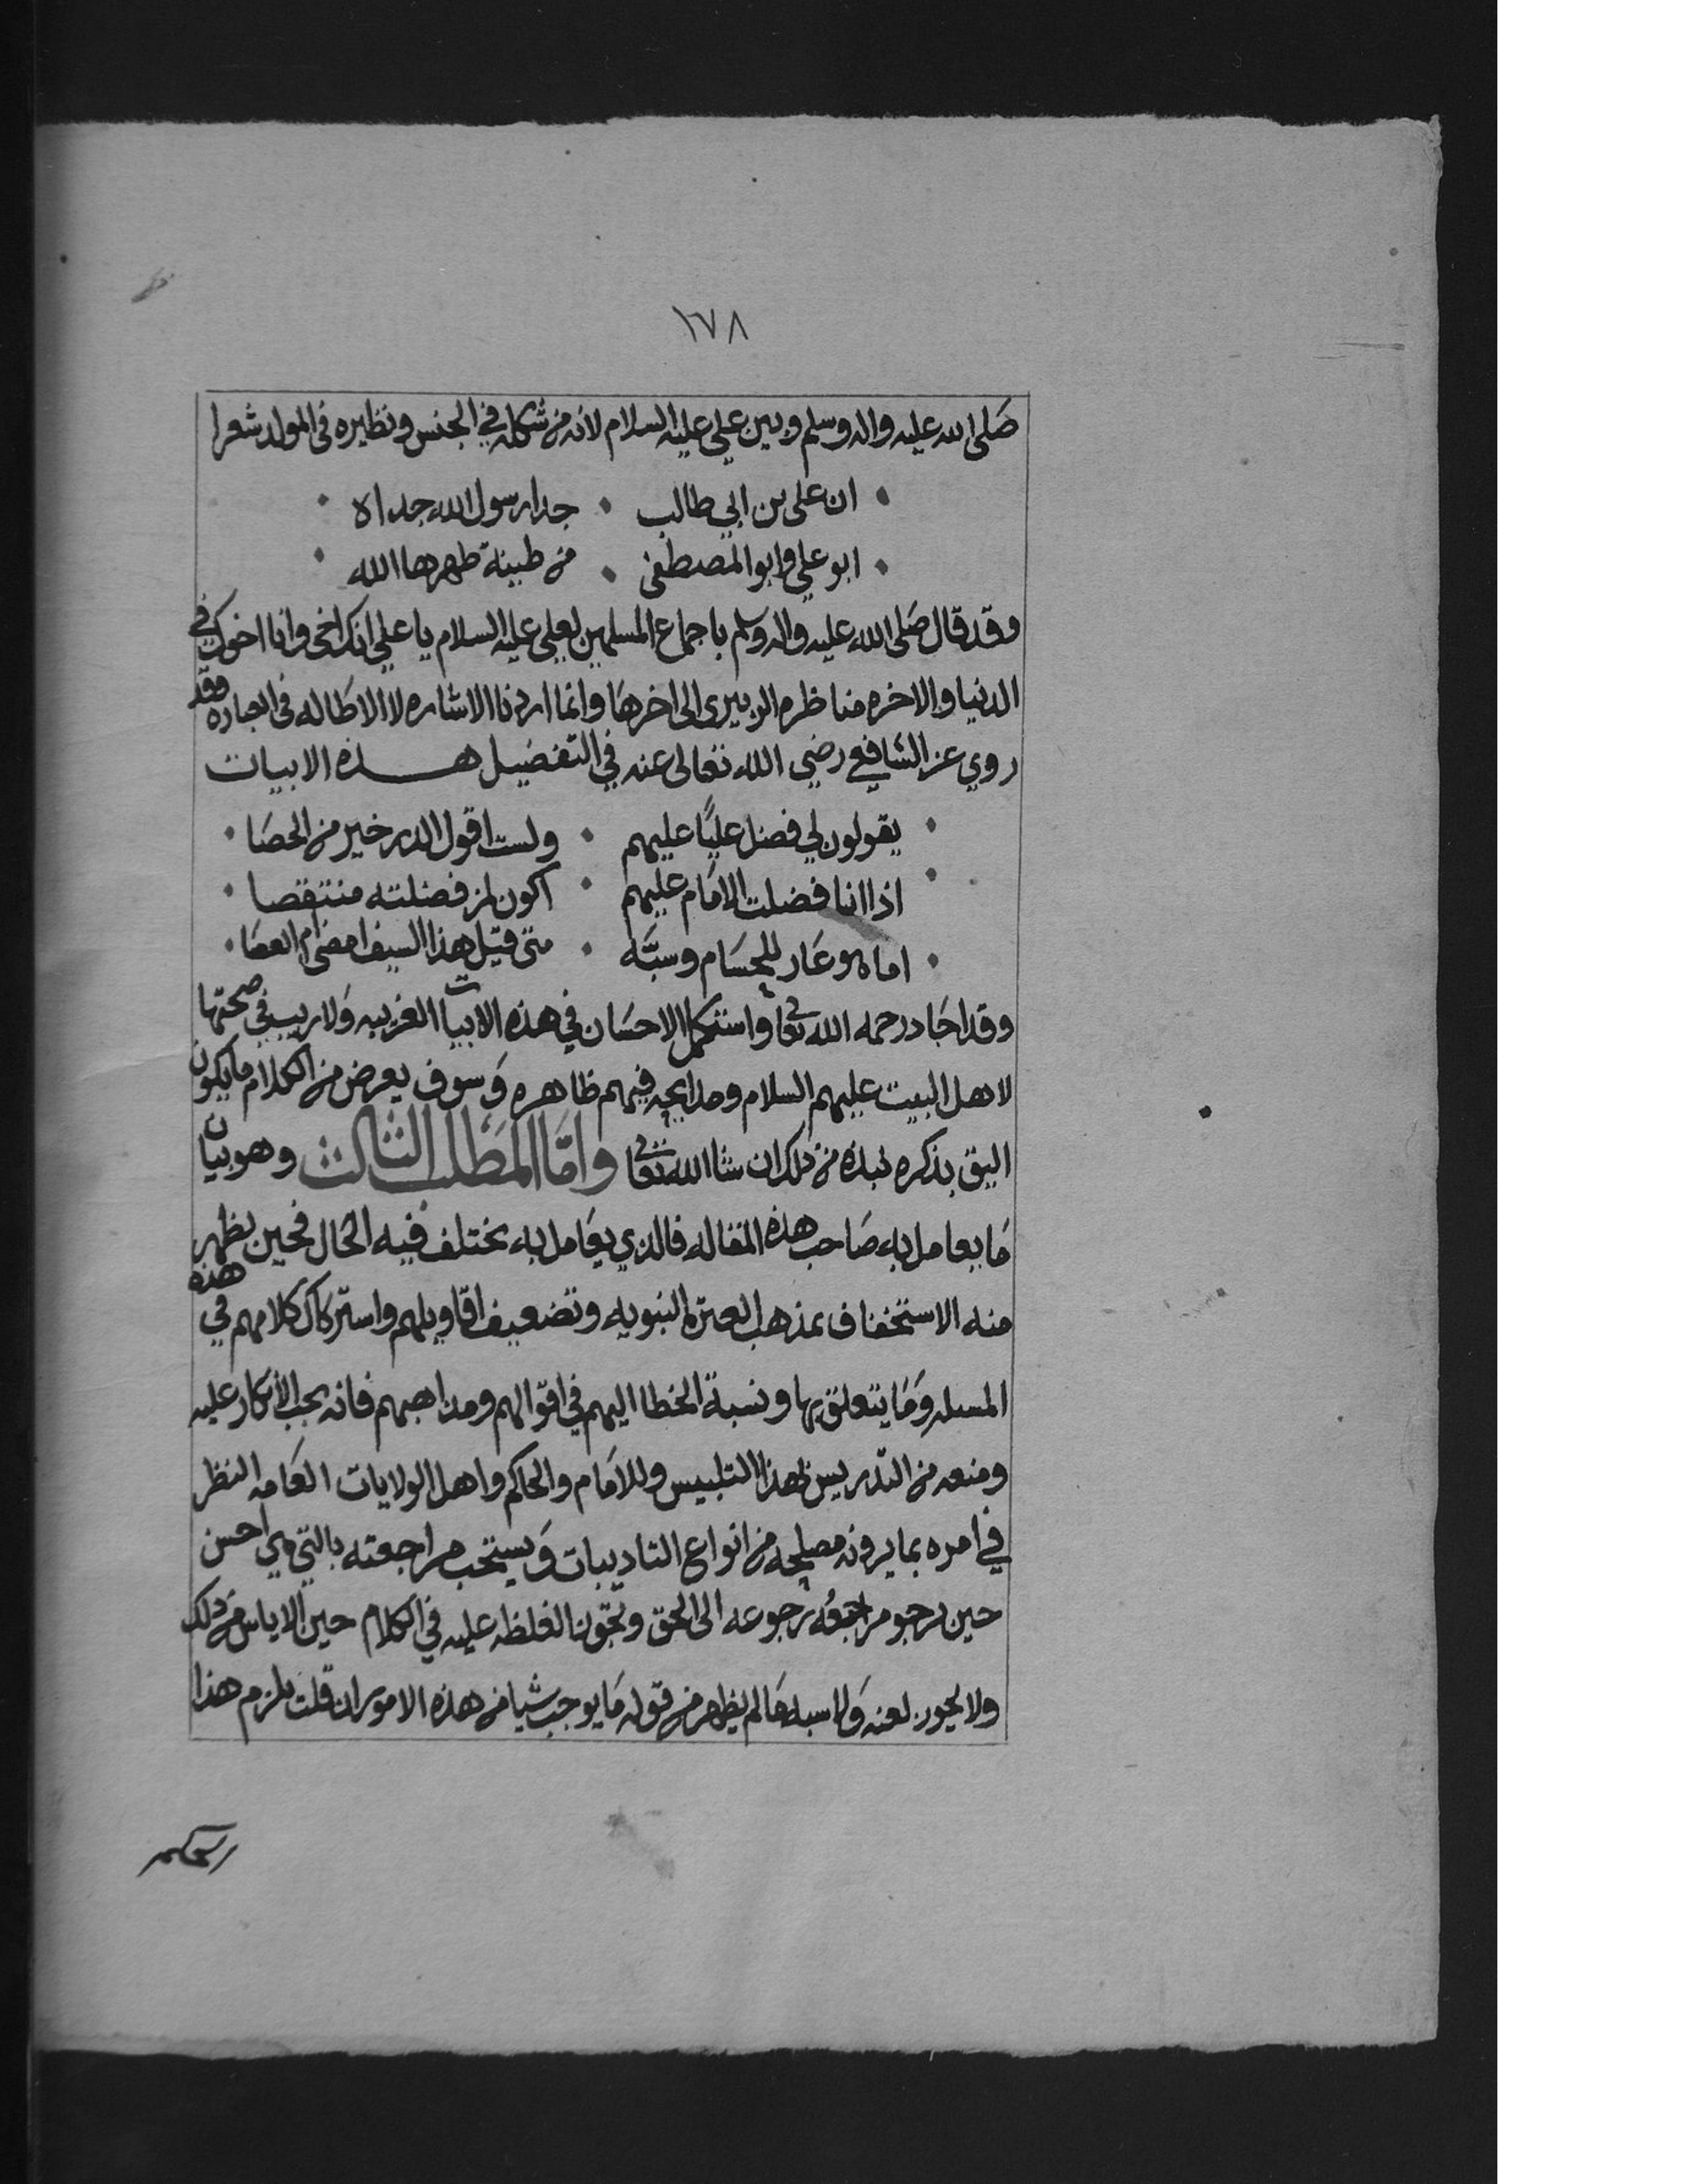 ١٧٨
صَلى الله عليه واله وسلم وبين علي عليه السلام لانه من شكله في الجنس ونظيره في المولد شعرا
ان علي بن ابي طالب • جدا رسول الله جداه
ابو علي وابو المصطفى • من طينة طهرها الله
وقد قال صَلى الله عليه واله وسلم باجماع المسلمين لعلي عليه السلام يا علي انك اخي وانا اخوك في
الدنيا والاخره مناظره الزبيرى الى اخرهَا وانما اردنا الاشاره لا الاطاله في العباره وقد
روي عن الشافعي رضي الله تعالى عنه في التفضيل هذه الابيات
يقولون لي فضل عليًا عليهم • ولست اقول الدر خير من الحصَا
اذا انا فضلت الامَام عليهم • اكون لمن فضلته منتقصا
اما هو عَار للحسَام وسبَّه • متى قيل هذا السيف امضى ام العصَا
وقد اجَاد رحمه الله تعالى واستكمل الاحسَان في هذه الابيات الغريبه وَلا ريب في صحتها
لاهل البيت عليهم السلام ومدايحه فيهم ظاهره وَسوف يعرض من الكلام ما يكون
اليق بذكره نبذه من ذلك ان شا الله تعالى وامَّا المَطَلب الثالث وهو بيان
مَا يعامل به صَاحب هذه المقاله فالذي يعَامل به يختلف فيه الحال فحين يظهر
منه الاستخفاف بمذهب العتره النبويه وتضعيف اقاويلهم واستركاك كلامهم في هذه
المسله وَمَا يتعلق بها ونسبة الخطا اليهم في اقوالهم ومذاهبهم فانه يجب الأنكار عليه
ومنعه من التدريس لهذا التلبيس وللامَام والحاكم واهل الولايات العَامه النظر
في امره بما يرونه مصلحه من انواع التاديبات وَيستحب مراجعته بالتي هي احسن
حين يرجو مراجعُه رجوعه الى الحق وتجوز الغلظه عليه في الكلام حين الاياس من ذلك
ولا يجوز لعنه وَلا سبه مَا لم يظهر من قوله مَا يوجب شيا من هذه الامور ان قلت يلزم هذا